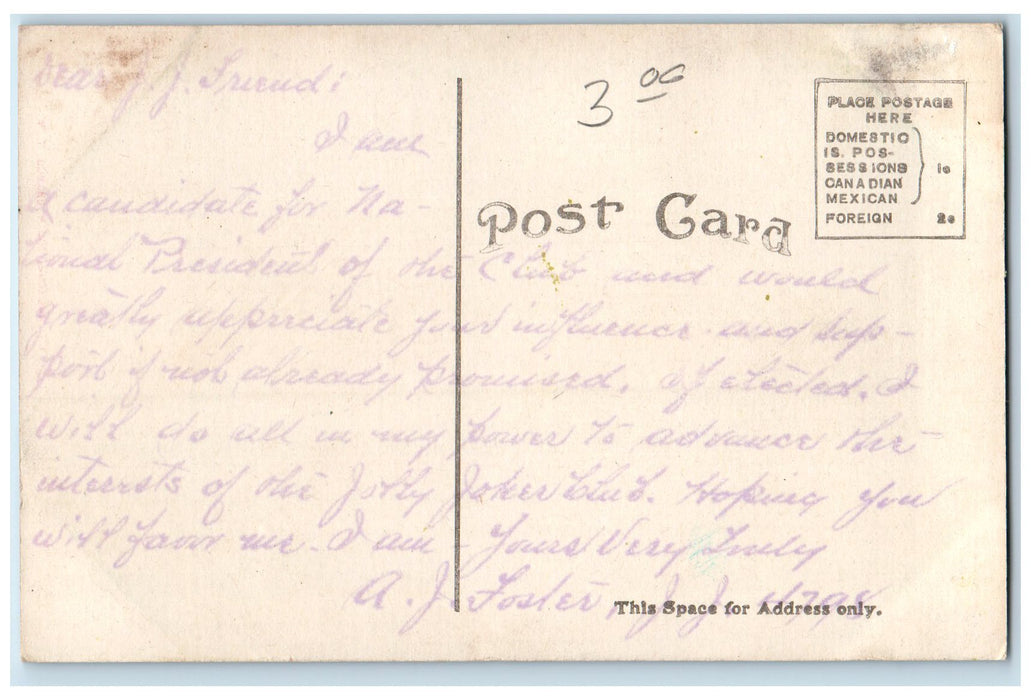 Dear J. J. Friend:
I am
a candidate for Na-
tional President of the Club and would
greatly appreciate your influence and sup-
port if not already promised. If elected, I
will do all in my power to advance the
interests of the Jolly Joker Club. Hoping you
will favor me. I am - Yours Very Truly
A. J. Foster, J. J. 4798
3 00
Post Card
PLACE POSTAGE
HERE
DOMESTIC
IS. POS-
SESSIONS
CANADIAN
MEXICAN
1c
FOREIGN 2c
This Space for Address only.